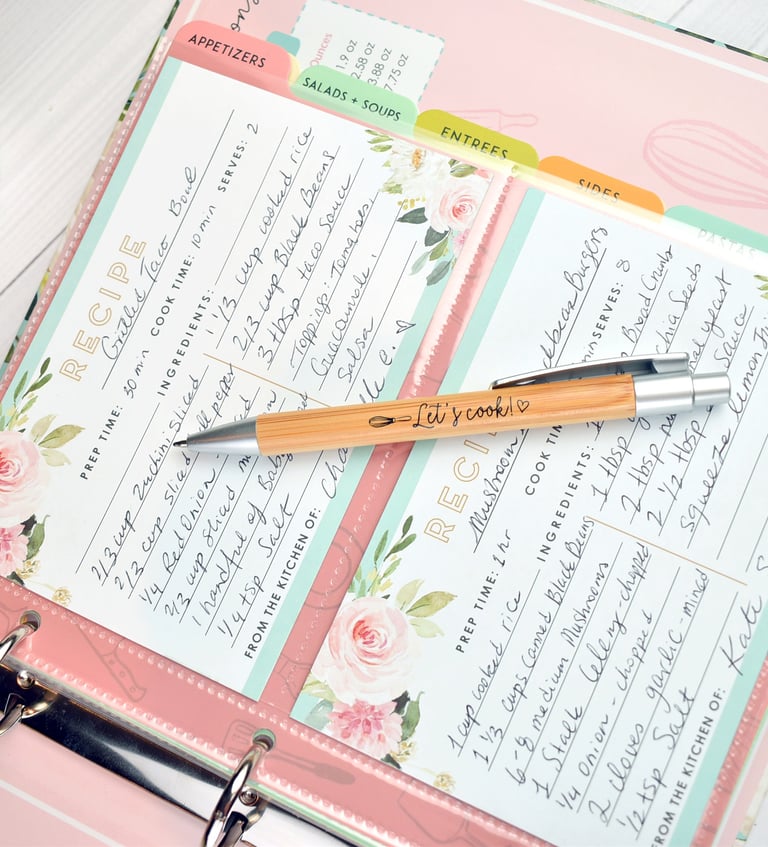 Ounces
1.9 oz
2.58 oz
3.88 oz
7.75 oz
APPETIZERS
SALADS + SOUPS
ENTREES
SIDES
PASTAS
RECIPE
Grilled Taco Bowl
PREP TIME: 30 min COOK TIME: 10 min SERVES: 2
INGREDIENTS:
2/3 cup Zucchini-Sliced
2/3 cup sliced pepper
1/4 Red Onion
2/3 cup sliced
1 handful of Baby
1/4 tsp Salt
1 1/3 cup cooked rice
2/3 cup Black Beans
3 tbsp taco Sauce
Toppings: Tomatoes,
Guacamole,
Salsa
FROM THE KITCHEN OF:
Let's cook!
RECI
Mushroom Burgers
PREP TIME: 1 hr COOK TIME: min SERVES: 8
INGREDIENTS:
1 cup cooked rice
1 1/3 cups Canned Black Beans
6-8 medium Mushrooms
1 Stalk Celery-chopped
1/4 onion-chopped
2 cloves garlic-minced
1/2 tsp Salt
Bread Crumbs
1 tbsp Chia Seeds
2 tbsp yeast
2 1/2 tbsp Sauce
Squeeze lemon
FROM THE KITCHEN OF: Kate